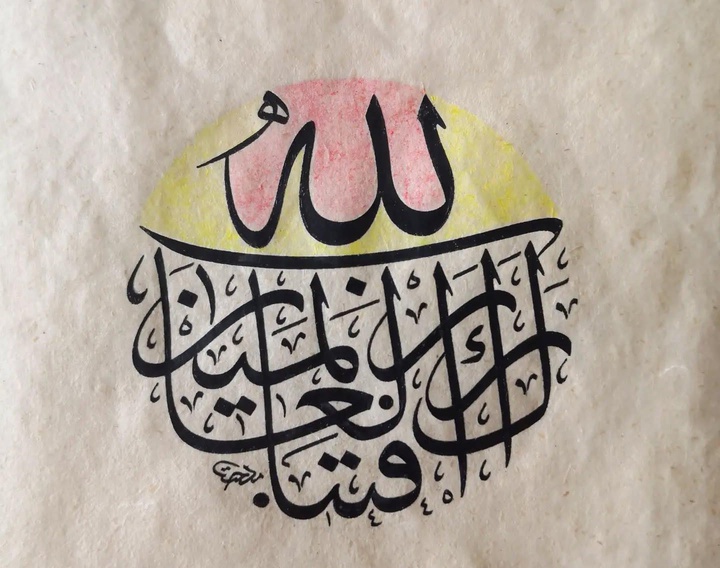 فتبارك الله رب العالمين
١٤٤٥